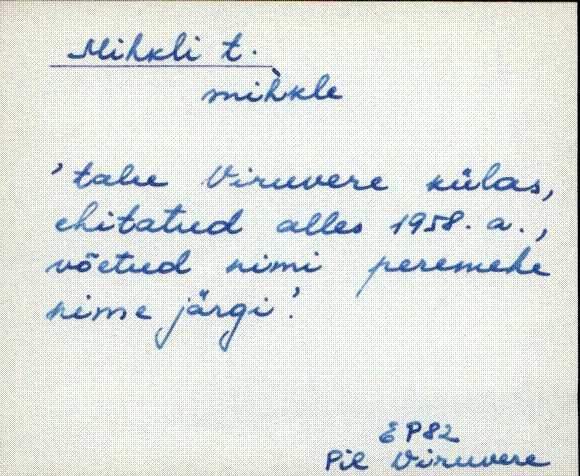 Mihkli t.
mihkle
'talu Viruvere külas,
ehitatud alles 1958. a.,
võetud nimi peremehe
nime järgi'.
EP82
Pil Viruvere